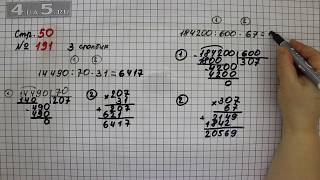 4-A-5.RU
Стр. 50
№ 191
3 столбик
① ②
14490:70·31=6417
① 14490|70
140 |207
-490
490
0
② ×207
31
+207
621
6417
① ②
184200:600·67=
① -184200|600
1800 |307
-4200
4200
0
② ×307
67
+2149
1842
20569